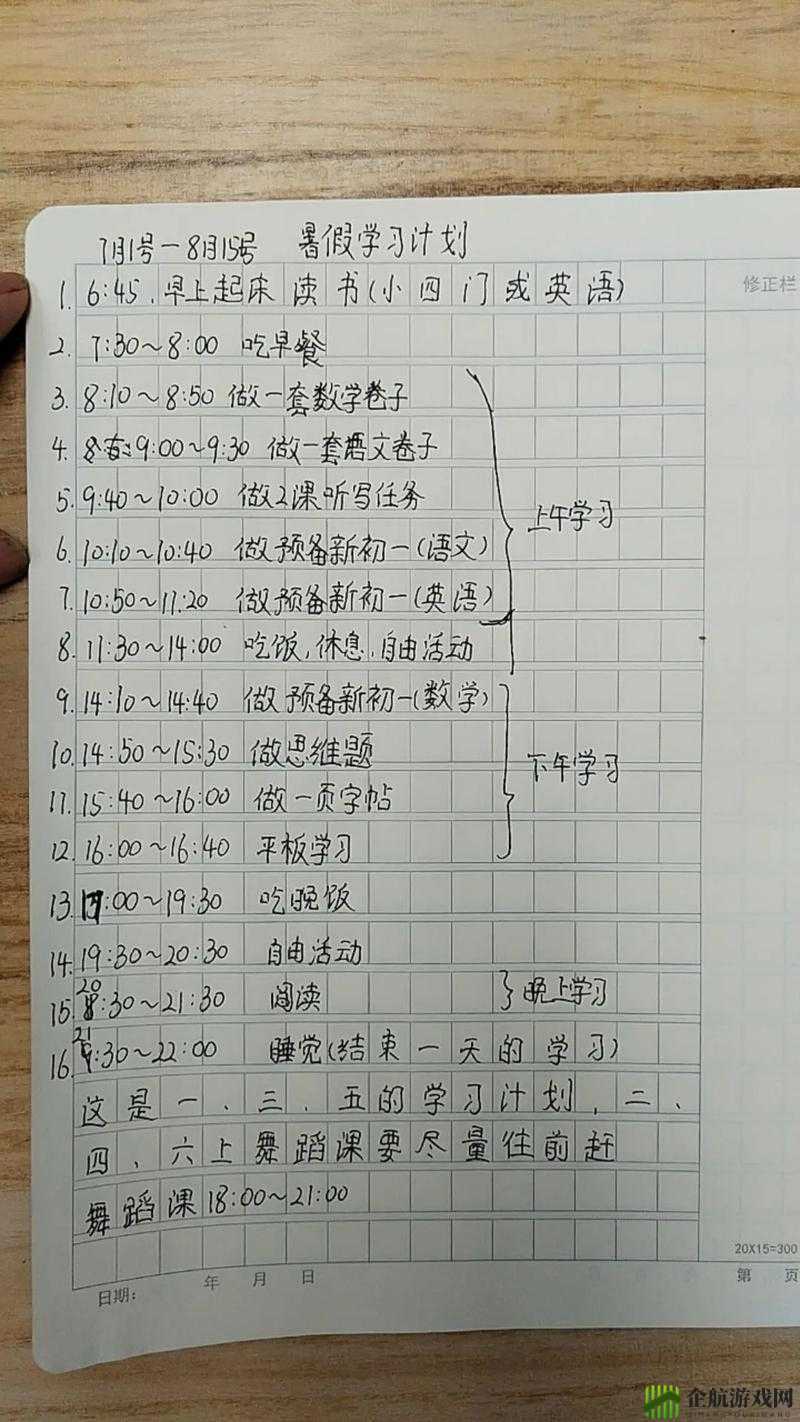 7月1号-8月15号 暑假学习计划
修正栏
1. 6:45.早上起床读书(小四门或英语)
2. 7:30~8:00 吃早餐
3. 8:10~8:50 做一套数学卷子
4. 9:00~9:30 做一套语文卷子
5. 9:40~10:00 做2课听写任务
上午学习
6. 10:10~10:40 做预备新初一(语文)
7. 10:50~11:20 做预备新初一(英语)
8. 11:30~14:00 吃饭,休息,自由活动
9. 14:10~14:40 做预备新初一(数学)
10. 14:50~15:30 做思维题
下午学习
11. 15:40~16:00 做一页字帖
12. 16:00~16:40 平板学习
13. :00~19:30 吃晚饭
14. 19:30~20:30 自由活动
15. 20:30~21:30 阅读 晚上学习
16. 21:30~22:00 睡觉(结束一天的学习)
这是一、三、五的学习计划,二、
四、六上舞蹈课要尽量往前赶
舞蹈课18:00~21:00
20X15=300
日期: 年 月 日 第 页
企航游戏网